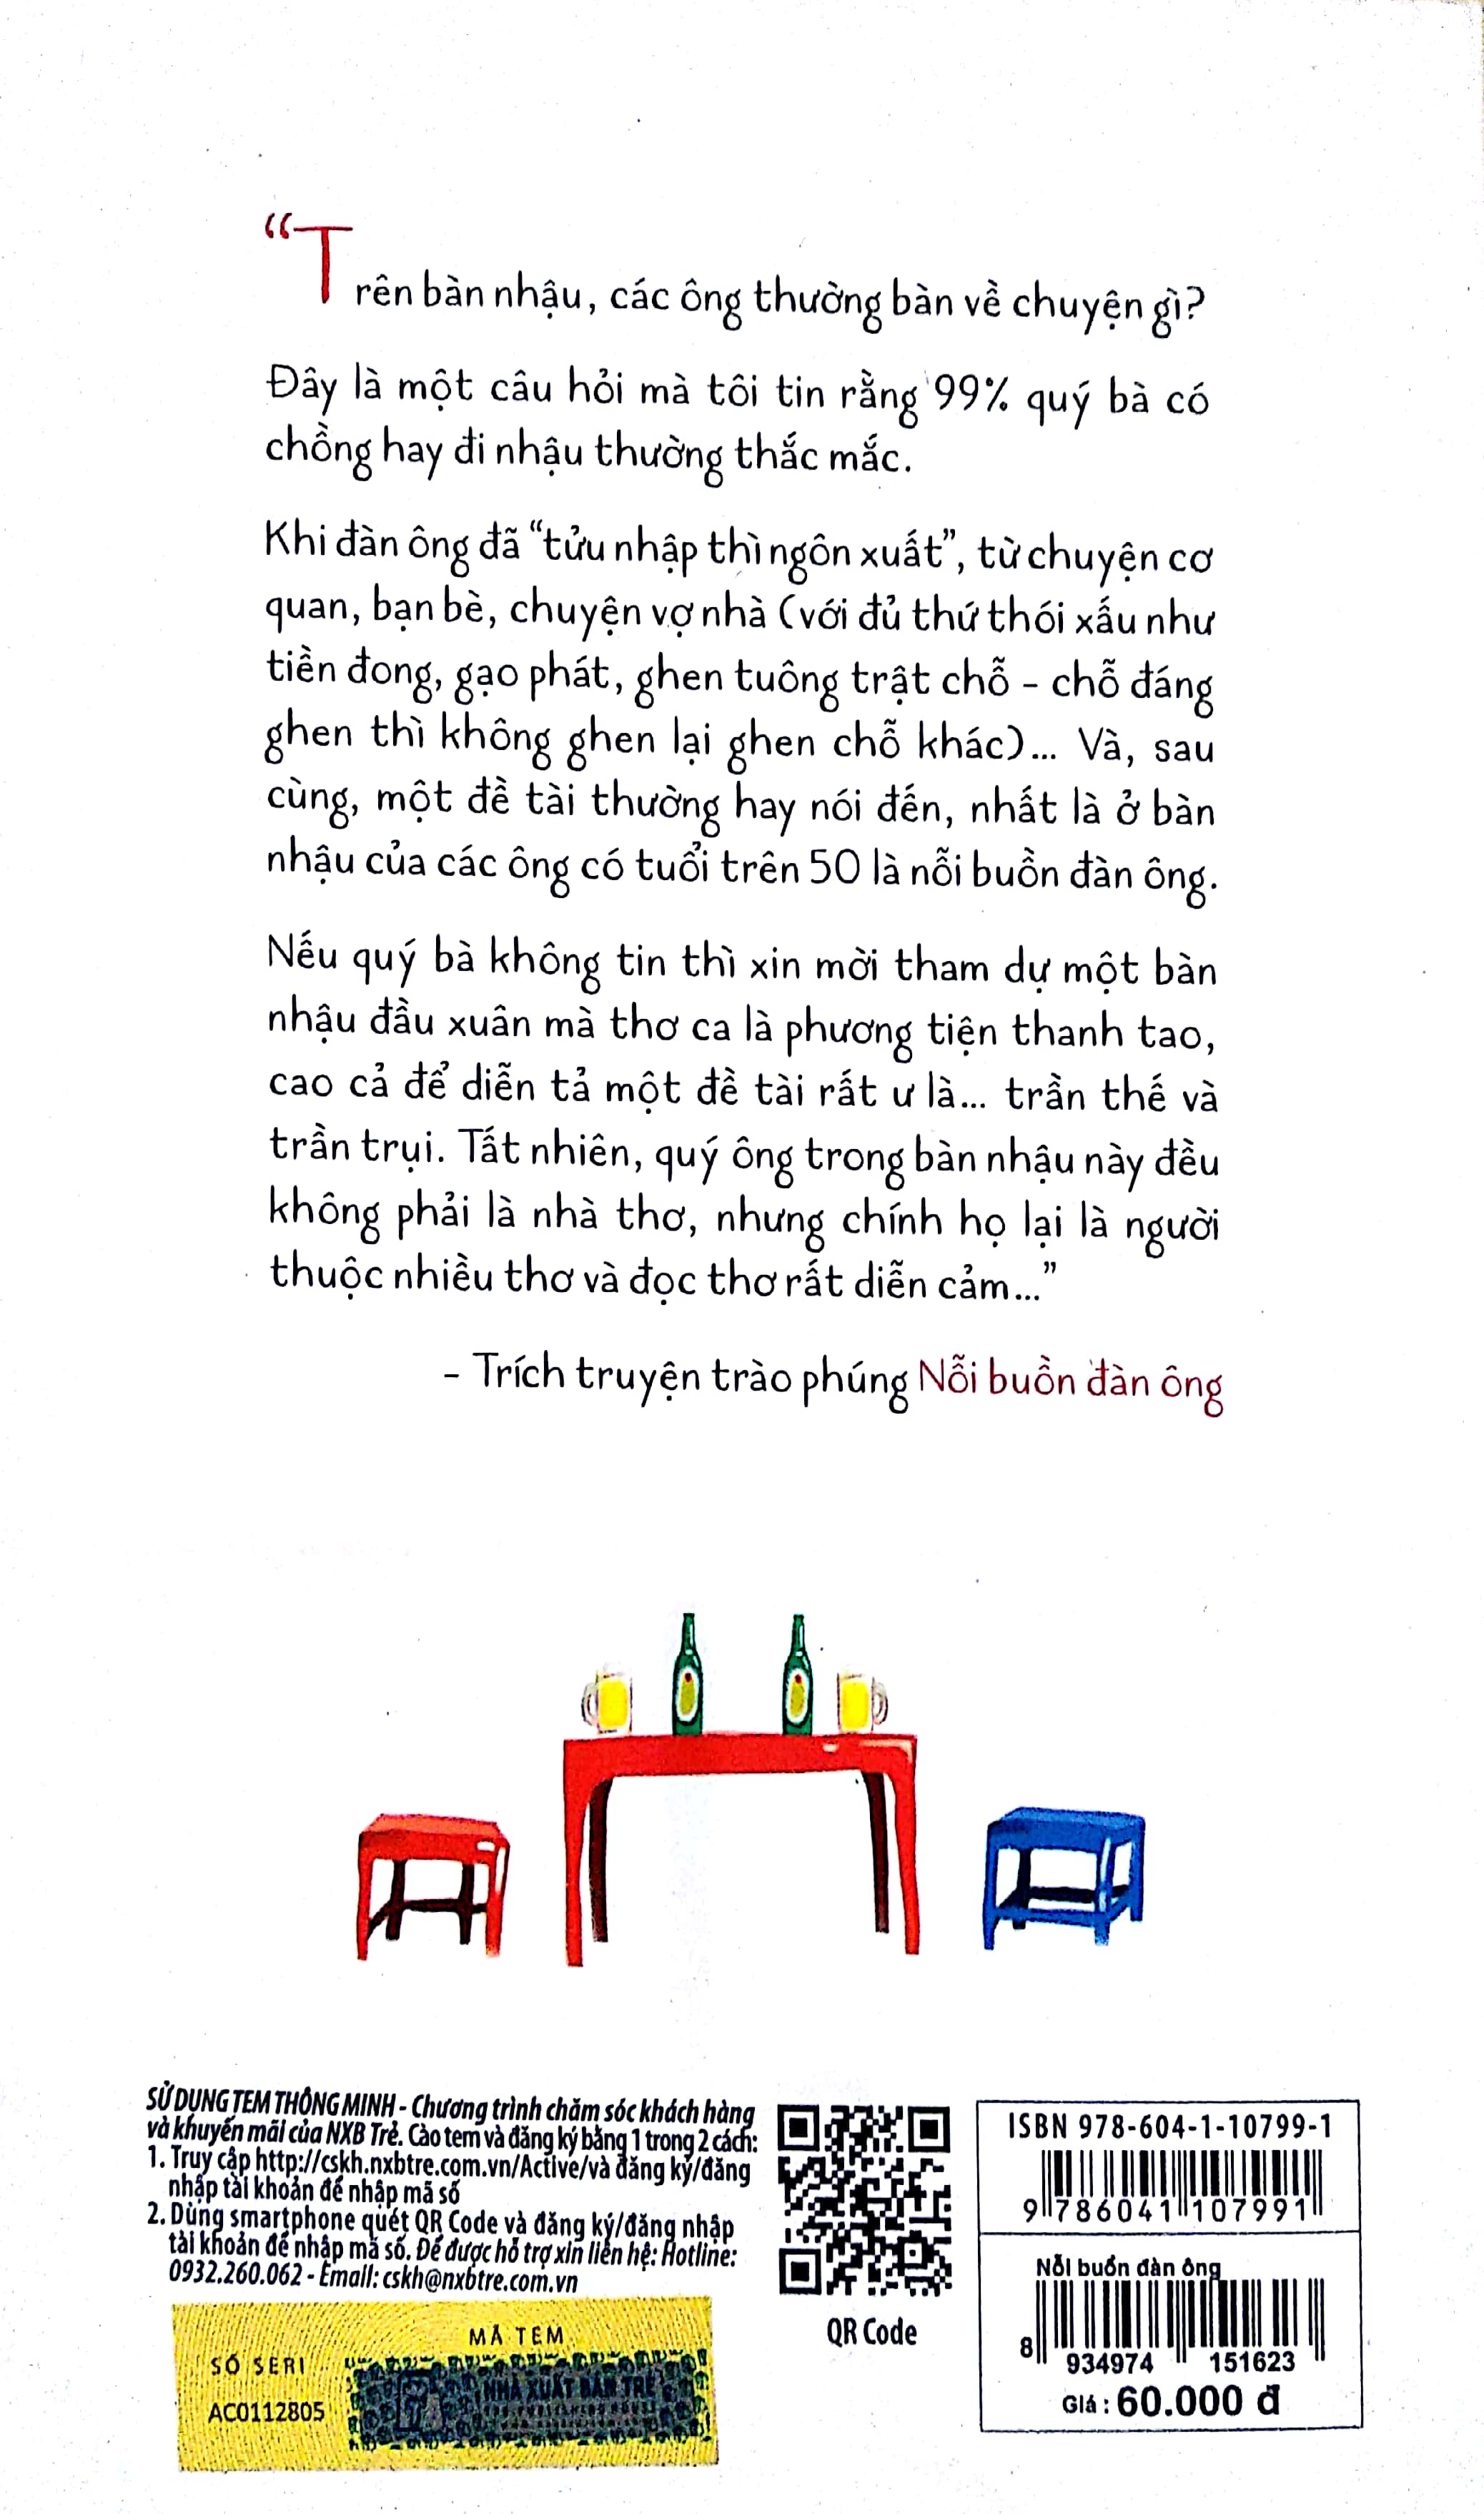 “Trên bàn nhậu, các ông thường bàn về chuyện gì?
Đây là một câu hỏi mà tôi tin rằng 99% quý bà có
chồng hay đi nhậu thường thắc mắc.
Khi đàn ông đã “tửu nhập thì ngôn xuất”, từ chuyện cơ
quan, bạn bè, chuyện vợ nhà (với đủ thứ thói xấu như
tiền đong, gạo phát, ghen tuông trật chỗ - chỗ đáng
ghen thì không ghen lại ghen chỗ khác)... Và, sau
cùng, một đề tài thường hay nói đến, nhất là ở bàn
nhậu của các ông có tuổi trên 50 là nỗi buồn đàn ông.
Nếu quý bà không tin thì xin mời tham dự một bàn
nhậu đầu xuân mà thơ ca là phương tiện thanh tao,
cao cả để diễn tả một đề tài rất ư là... trần thế và
trần trụi. Tất nhiên, quý ông trong bàn nhậu này đều
không phải là nhà thơ, nhưng chính họ lại là người
thuộc nhiều thơ và đọc thơ rất diễn cảm...”
- Trích truyện trào phúng Nỗi buồn đàn ông
SỬ DỤNG TEM THÔNG MINH - Chương trình chăm sóc khách hàng
và khuyến mãi của NXB Trẻ. Cào tem và đăng ký bằng 1 trong 2 cách:
1. Truy cập http://cskh.nxbtre.com.vn/Active/và đăng ký/đăng
nhập tài khoản để nhập mã số
2. Dùng smartphone quét QR Code và đăng ký/đăng nhập
tài khoản để nhập mã số. Để được hỗ trợ xin liên hệ: Hotline:
0932.260.062 - Email: cskh@nxbtre.com.vn
MÃ TEM
SỐ SERI
AC0112805
NHÀ XUẤT BẢN TRẺ
QR Code
ISBN 978-604-1-10799-1
9 786041 107991
Nỗi buồn đàn ông
8 934974 151623
Giá : 60.000 đ